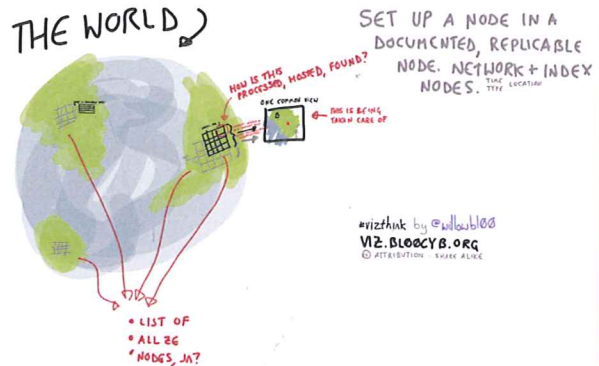 THE WORLD
SET UP A NODE IN A
DOCUMENTED, REPLICABLE
NODE. NETWORK + INDEX
NODES. TIME
TYPE LOCATION
HOW IS THIS
PROCESSED, HOSTED, FOUND?
ONE COMMON VIEW
THIS IS BEING
TAKEN CARE OF
#vizthink by @willowbl00
VIZ.BL00CYB.ORG
ATTRIBUTION - SHARE ALIKE
• LIST OF
• ALL ZE
• NODES, JA?